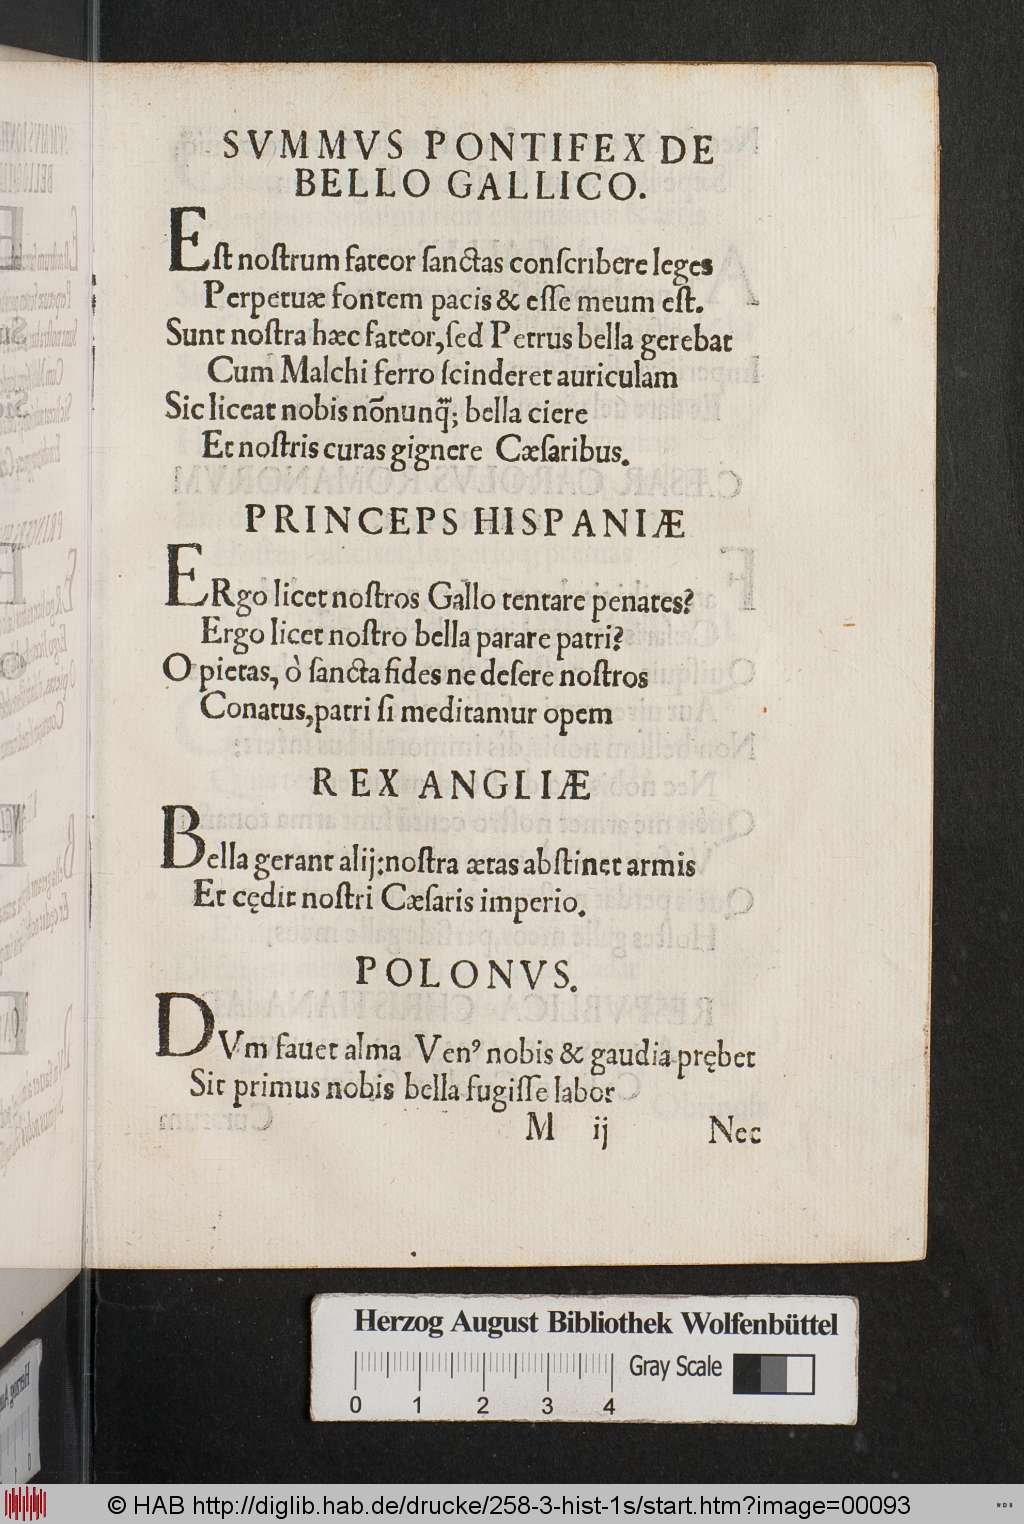 SVMMVS PONTIFEX DE
BELLO GALLICO.
Eſt noſtrum fateor ſanctas conſcribere leges
Perpetuæ fontem pacis & eſſe meum eſt.
Sunt noſtra hæc fateor, ſed Petrus bella gerebat
Cum Malchi ferro ſcinderet auriculam
Sic liceat nobis nōnunq̃; bella ciere
Et noſtris curas gignere Cæſaribus.
PRINCEPS HISPANIÆ
ERgo licet noſtros Gallo tentare penates?
Ergo licet noſtro bella parare patri?
O pietas, ò ſancta fides ne deſere noſtros
Conatus, patri ſi meditamur opem
REX ANGLIÆ
Bella gerant alij: noſtra ætas abſtinet armis
Et cędit noſtri Cæſaris imperio.
POLONVS.
DVm fauet alma Venꝰ nobis & gaudia prębet
Sit primus nobis bella fugiſſe labor
M ij Nec
Herzog August Bibliothek Wolfenbüttel
Gray Scale
0 1 2 3 4
© HAB http://diglib.hab.de/drucke/258-3-hist-1s/start.htm?image=00093